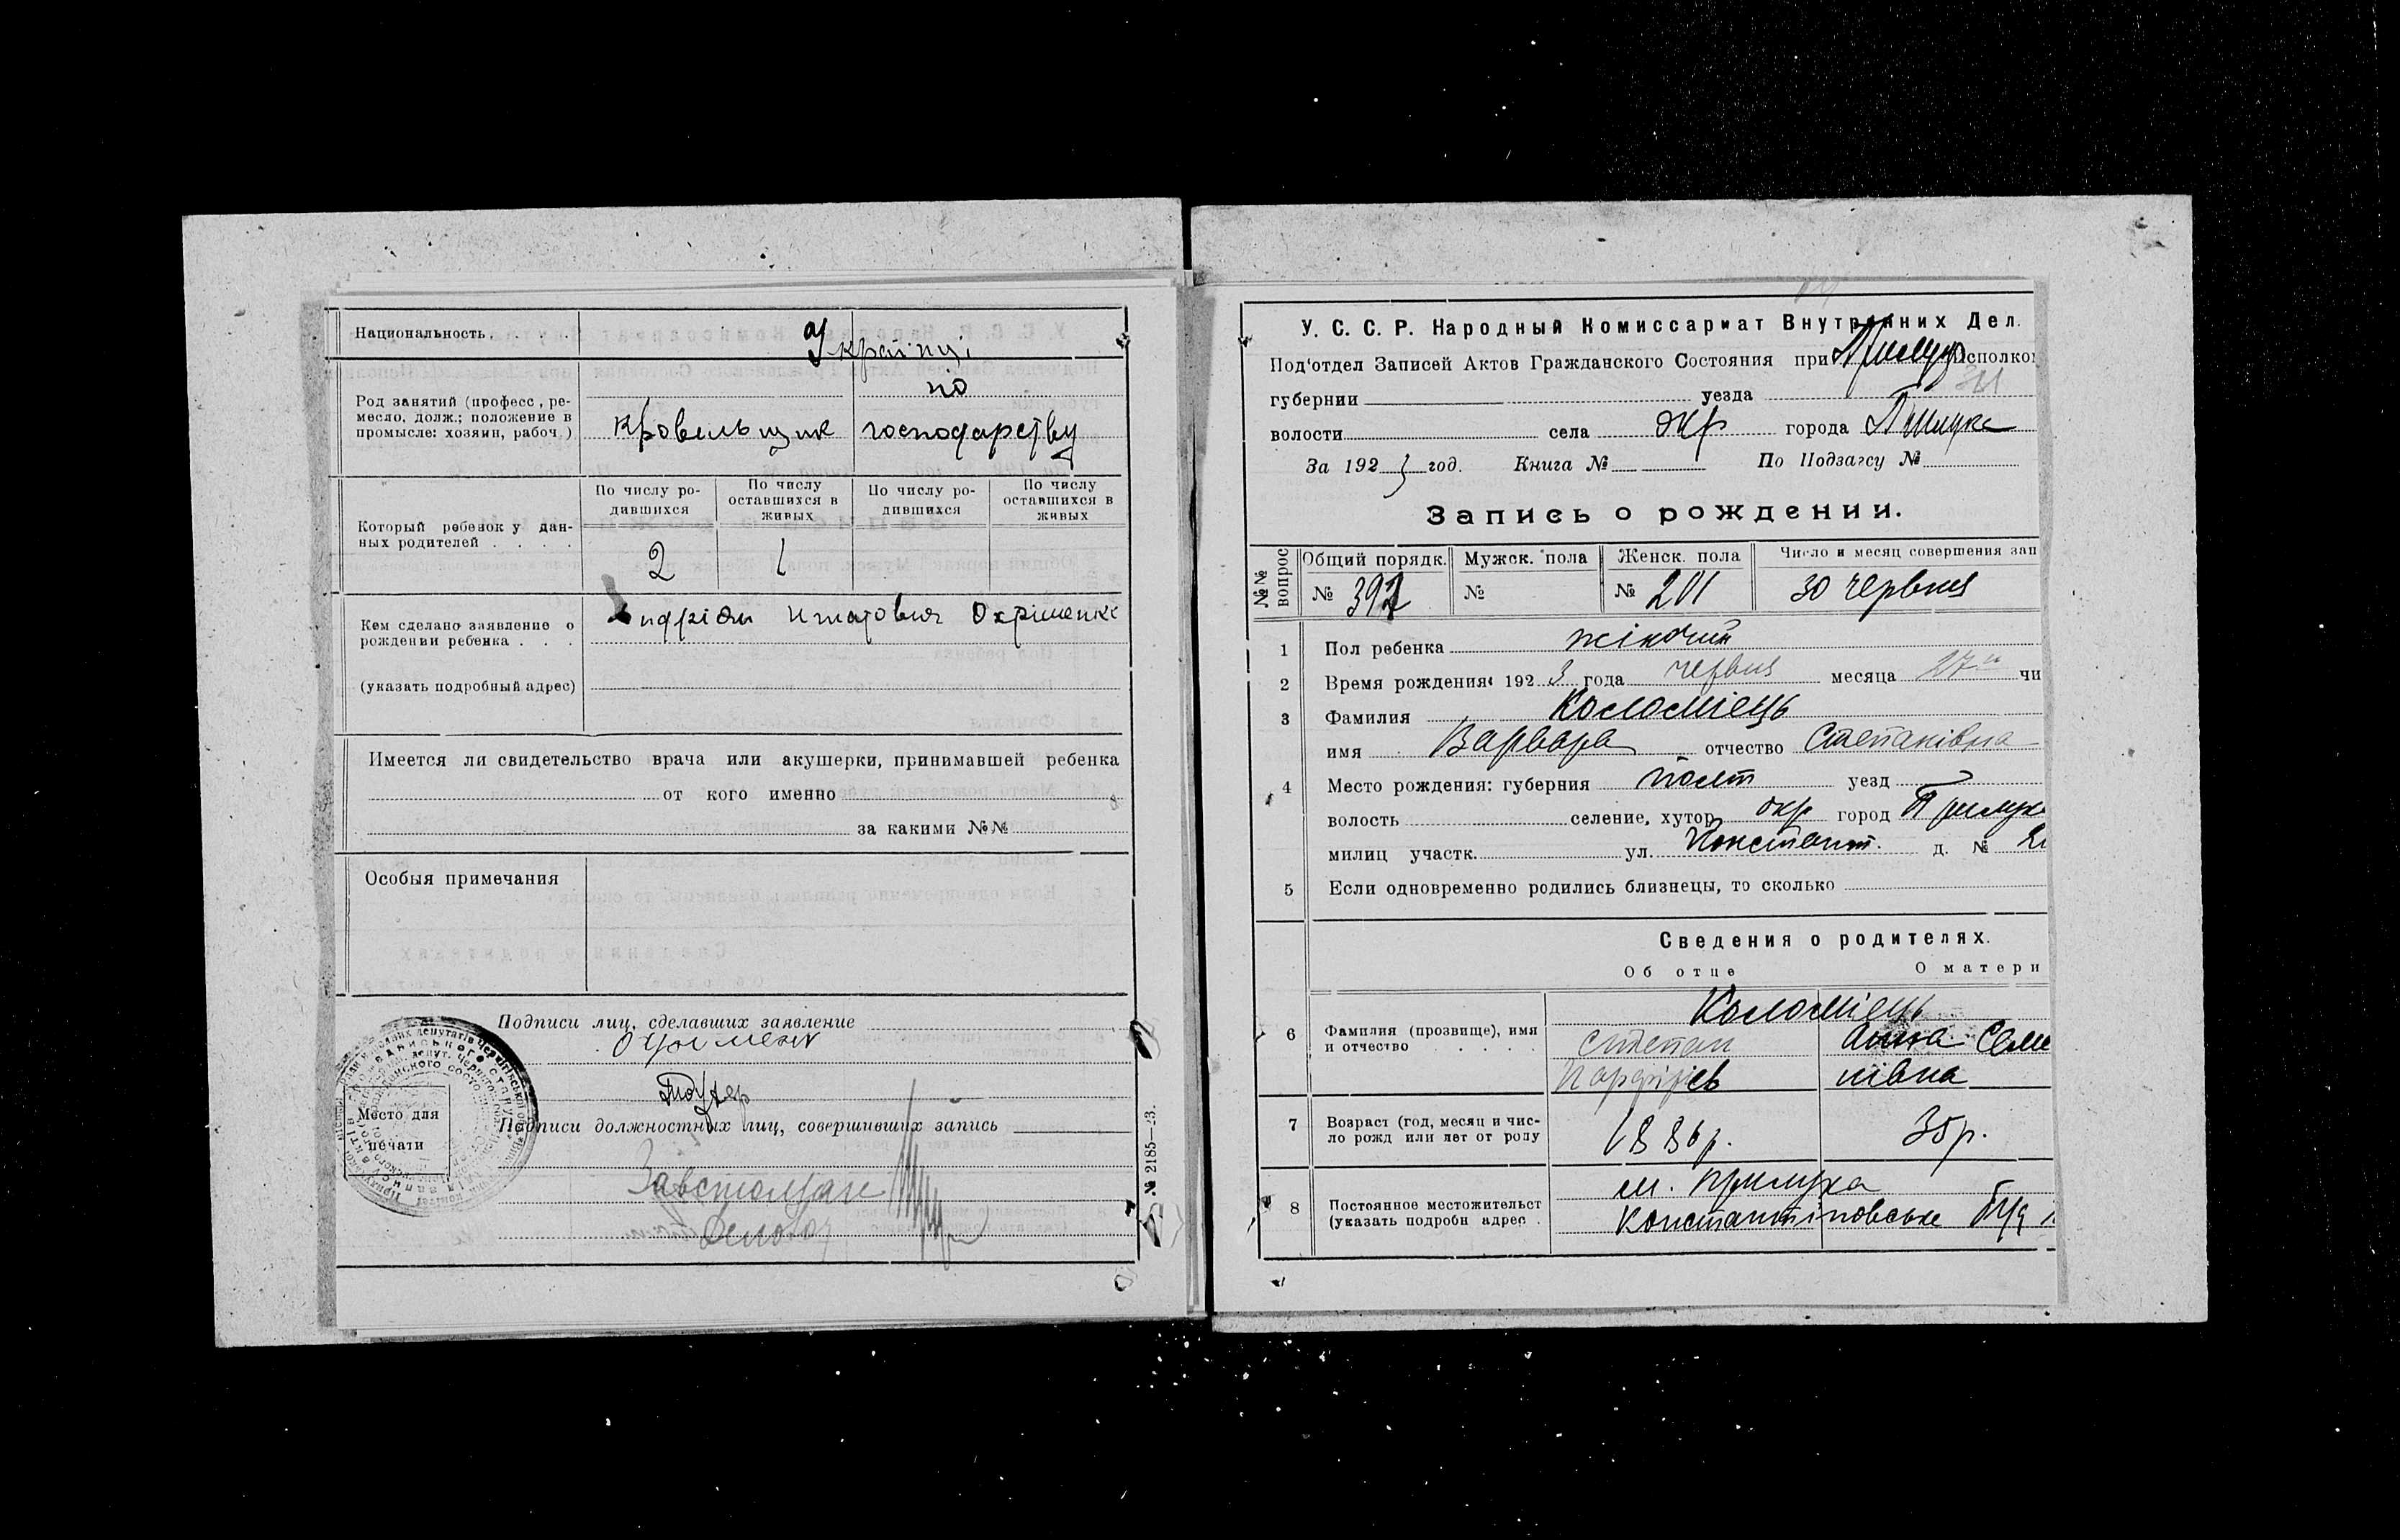 Национальность. Українці
по
Род занятий (професс, ре-
месло, долж.; положение в
промысле: хозяин, рабоч.) кровельщик господарству
По числу ро-
дившихся По числу
оставшихся в
живых По числу ро-
дившихся По числу
оставшихся в
живых
Который ребенок у дан-
ных родителей . . . . 2 1
Кем сделано заявление о
рождении ребенка . . . Охріменко
(указать подробный адрес)
Имеется ли свидетельство врача или акушерки, принимавшей ребенка
от кого именно
за какими №№
Особыя примечания
Подписи лиц, сделавших заявление
Место для
печати
Подписи должностных лиц, совершивших запись
№ 2185—23.
У. С. С. Р. Народный Комиссариат Внутренних Дел.
Под'отдел Записей Актов Гражданского Состояния при Прилуц Исполко
губернии уезда
волости села окр города Прилука
За 1923 год. Книга № По Подзагсу №
Запись о рождении.
№№
вопрос Общий порядк. Мужск. пола Женск. пола Число и месяц совершения зап
№ 392 № № 201 30 червня
1 Пол ребенка жіночий
2 Время рождения 1923 года червня месяца 27 чи
3 Фамилия Коломієць
имя Варвара отчество Степанівна
4 Место рождения: губерния Полт уезд
волость селение, хутор окр город Прилук
милиц участк. ул. Констант. д. №
5 Если одновременно родились близнецы, то сколько
Сведения о родителях.
Об отце О матери
Коломієць
6 Фамилия (прозвище), имя
и отчество . . . . . Степан Анна Семе
Порфирієв нівна
7 Возраст (год, месяц и чис-
ло рожд или лет от роду 1886 р. 35 р.
м. Прилука
8 Постоянное местожительст
(указать подробн адрес . Константіновське буд